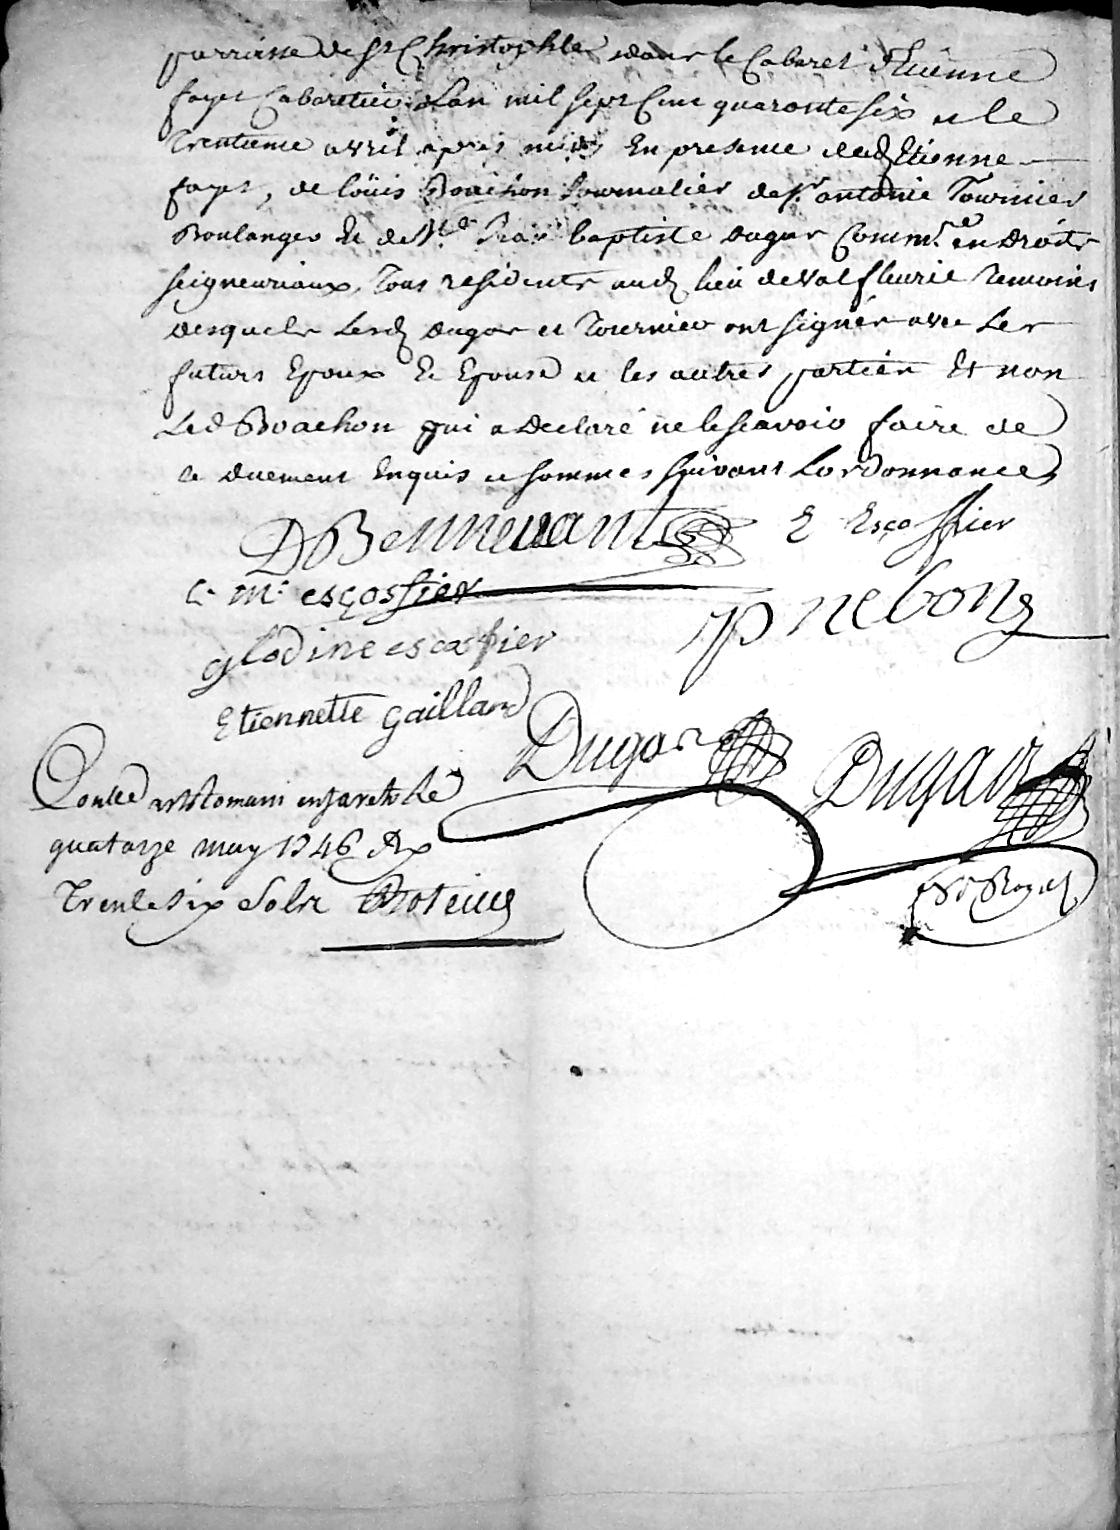 parroisse de St Christophle dans le Cabaret d'Etienne
fayet Cabaretier Lan mil sept Cent quarante six et le
trentieme avril apres midy En presence dud Etienne
fayet, de loüis Boachon Journalier de sr antoine Tournier
Boulanger Et de baptiste dugas Commre en droits
seigneuriaux, Tous residents aud lieu de Valfleurie Temoins
desquels Lesd dugas et Tournier ont signés avec Les
futurs Epoux Et Epouse et les autres parties Et non
Led Boachon qui a declaré ne le scavoir faire de
ce duement Enquis et sommes suivant Lordonnance
DBennevant E Escoffier
C. M. escossier
JP nebon
glodine escoffier
Etiennette gaillard
Dugas Dugas
Controllé a St Romain en jarets le
quatorze may 1746 Rx
Trente six sols